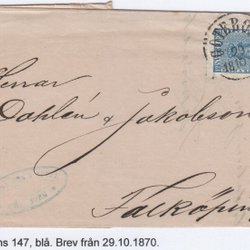 GÖTEBO
Herrar
Dahlén & Jakobson
Falköping
ns 147, blå. Brev från 29.10.1870.